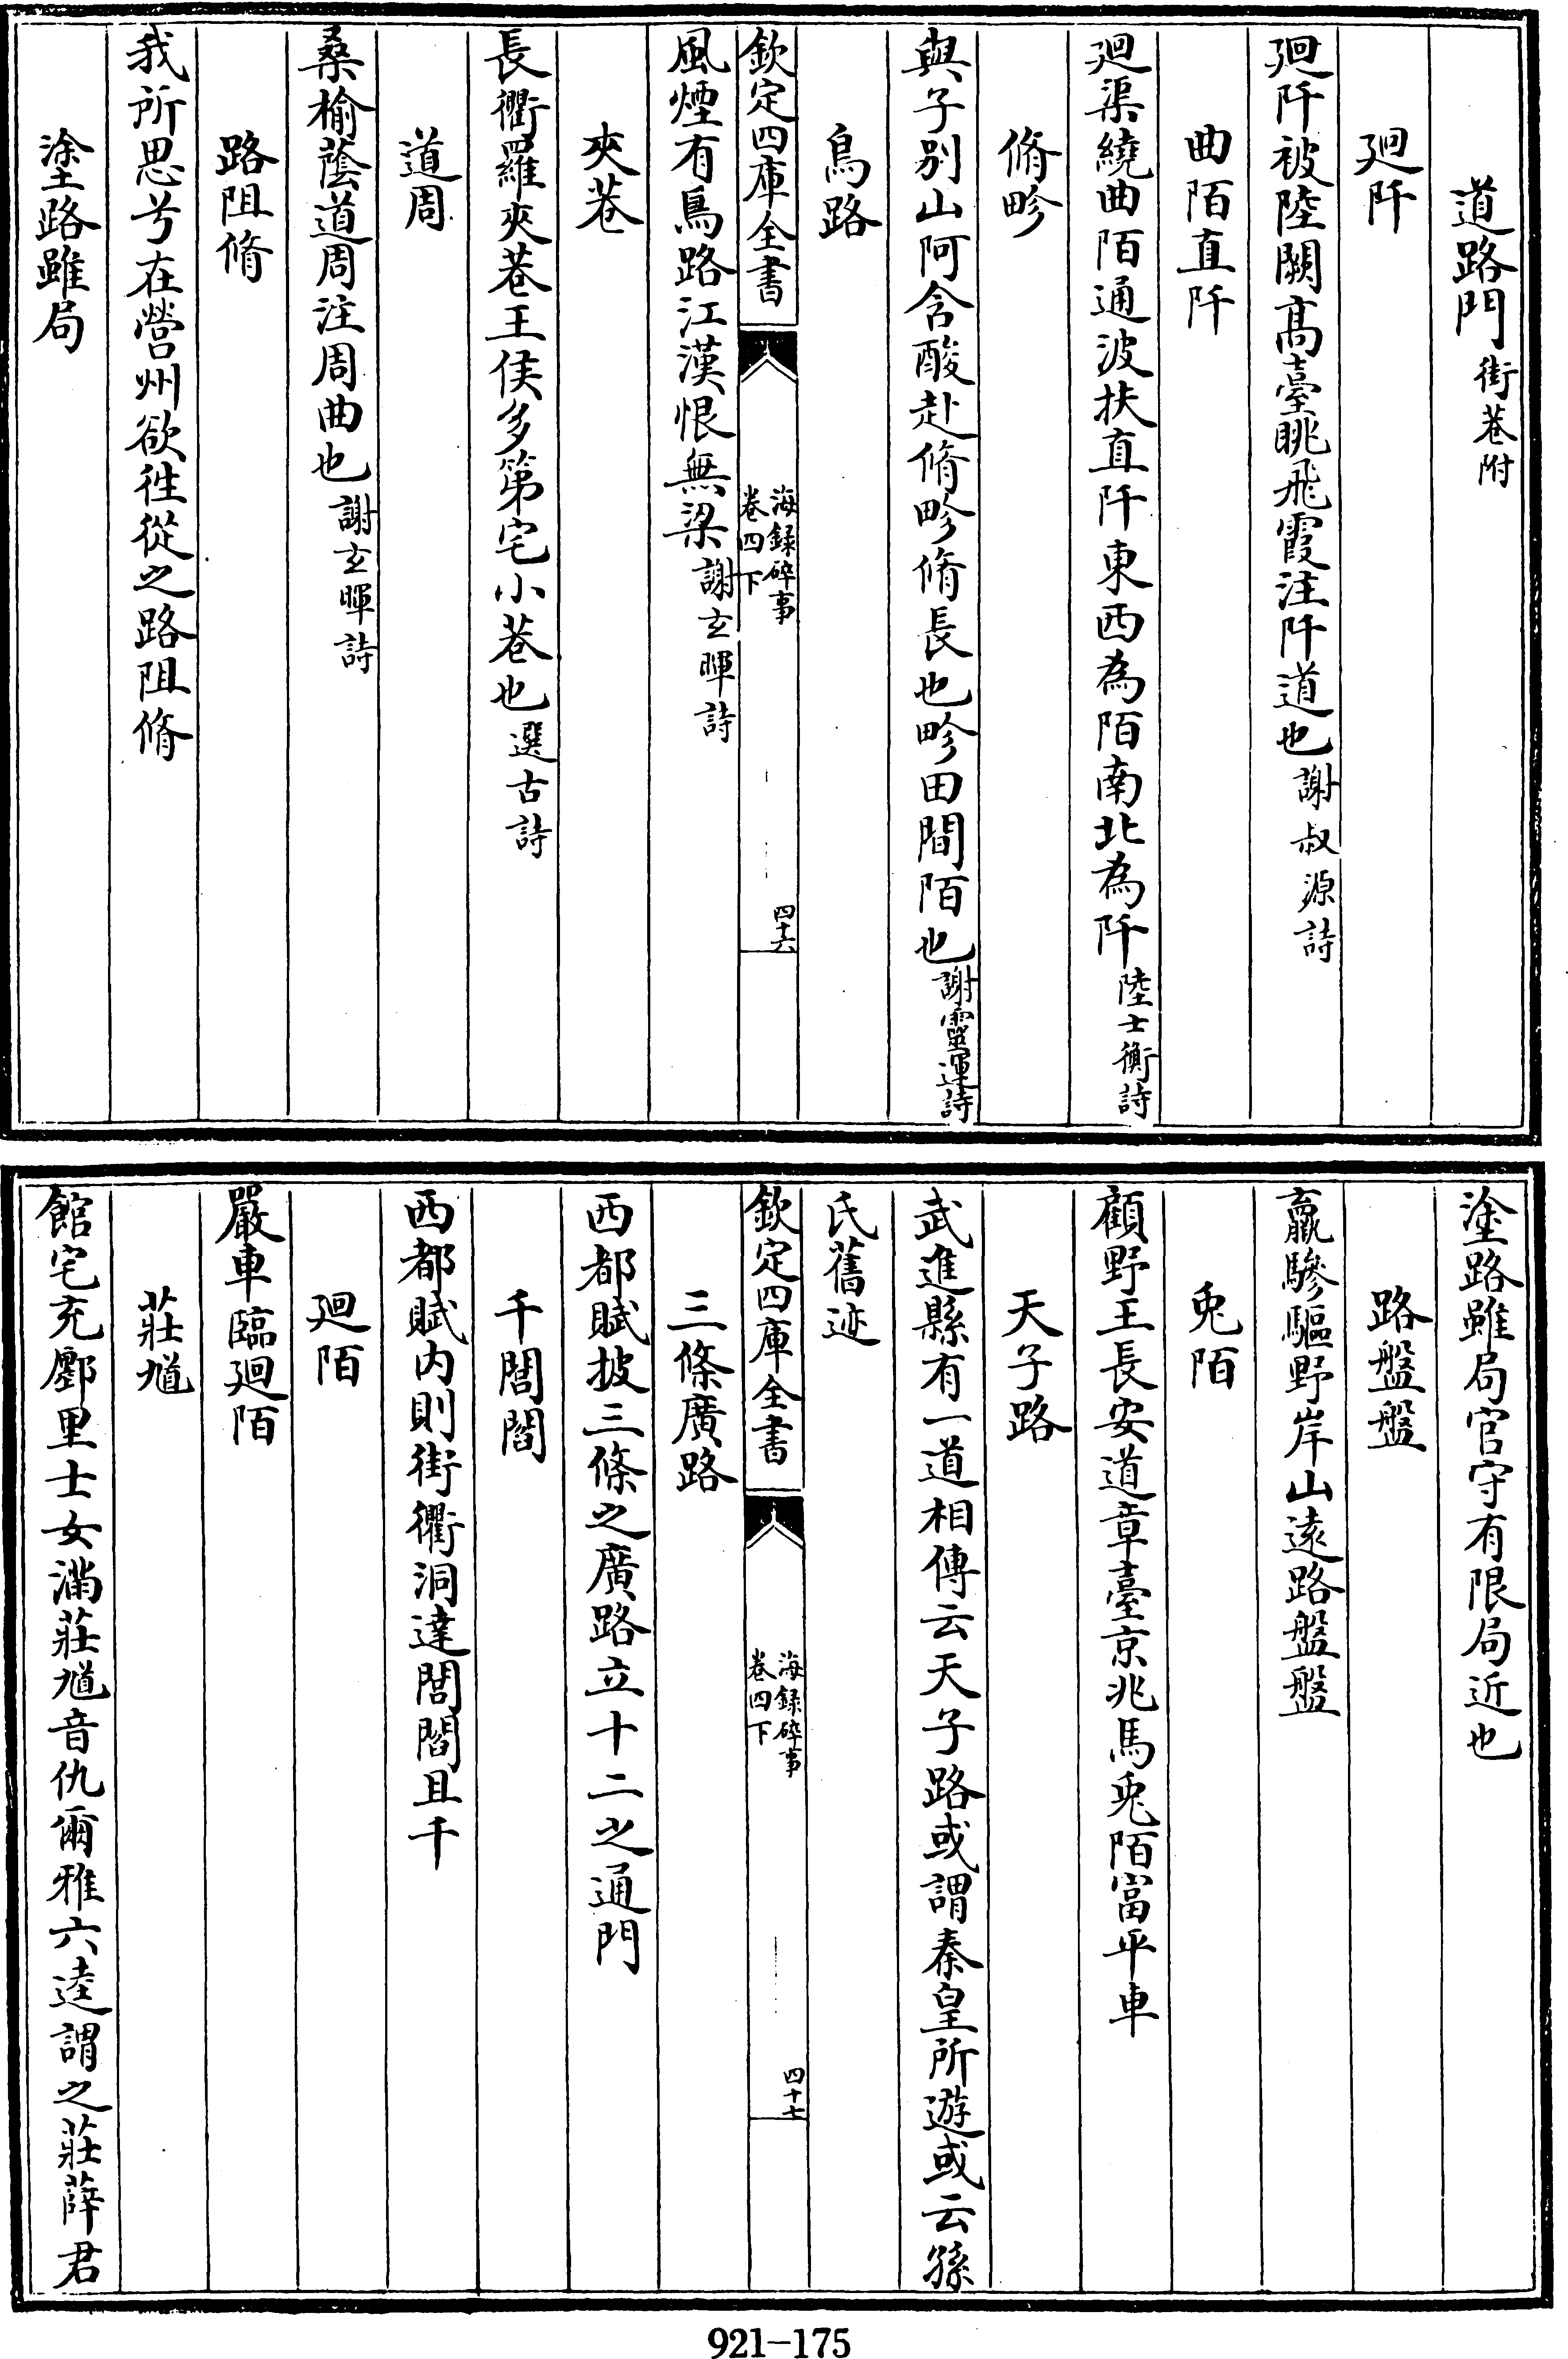 道路門街巷附
廻阡
廻阡被陸闕髙臺眺飛霞注阡道也謝叔源詩
曲陌直阡
廻渠繞曲陌通波扶直阡東西為陌南北為阡陸士衡詩
脩畛
與子别山阿含酸赴脩畛脩長也畛田間陌也謝靈運詩
鳥路
欽定四庫全書
海録碎事
卷四下
四十六
風煙有鳥路江漢恨無梁謝玄暉詩
夾巷
長衢羅夾巷王侯多第宅小巷也選古詩
道周
桑榆蔭道周注周曲也謝玄暉詩
路阻脩
我所思兮在營州欲徃從之路阻脩
塗路雖局
塗路雖局官守有限局近也
路盤盤
羸驂驅野岸山逺路盤盤
兎陌
顧野王長安道章臺京兆馬兎陌富平車
天子路
武進縣有一道相傳云天子路或謂秦皇所遊或云孫
氏舊迹
欽定四庫全書
海録碎事
卷四下
四十七
三條廣路
西都賦披三條之廣路立十二之通門
千閭閻
西都賦内則街衢洞達閭閻且千
廻陌
嚴車臨廻陌
莊馗
館宅充鄽里士女滿莊馗音仇爾雅六逵謂之莊薛君
921-175